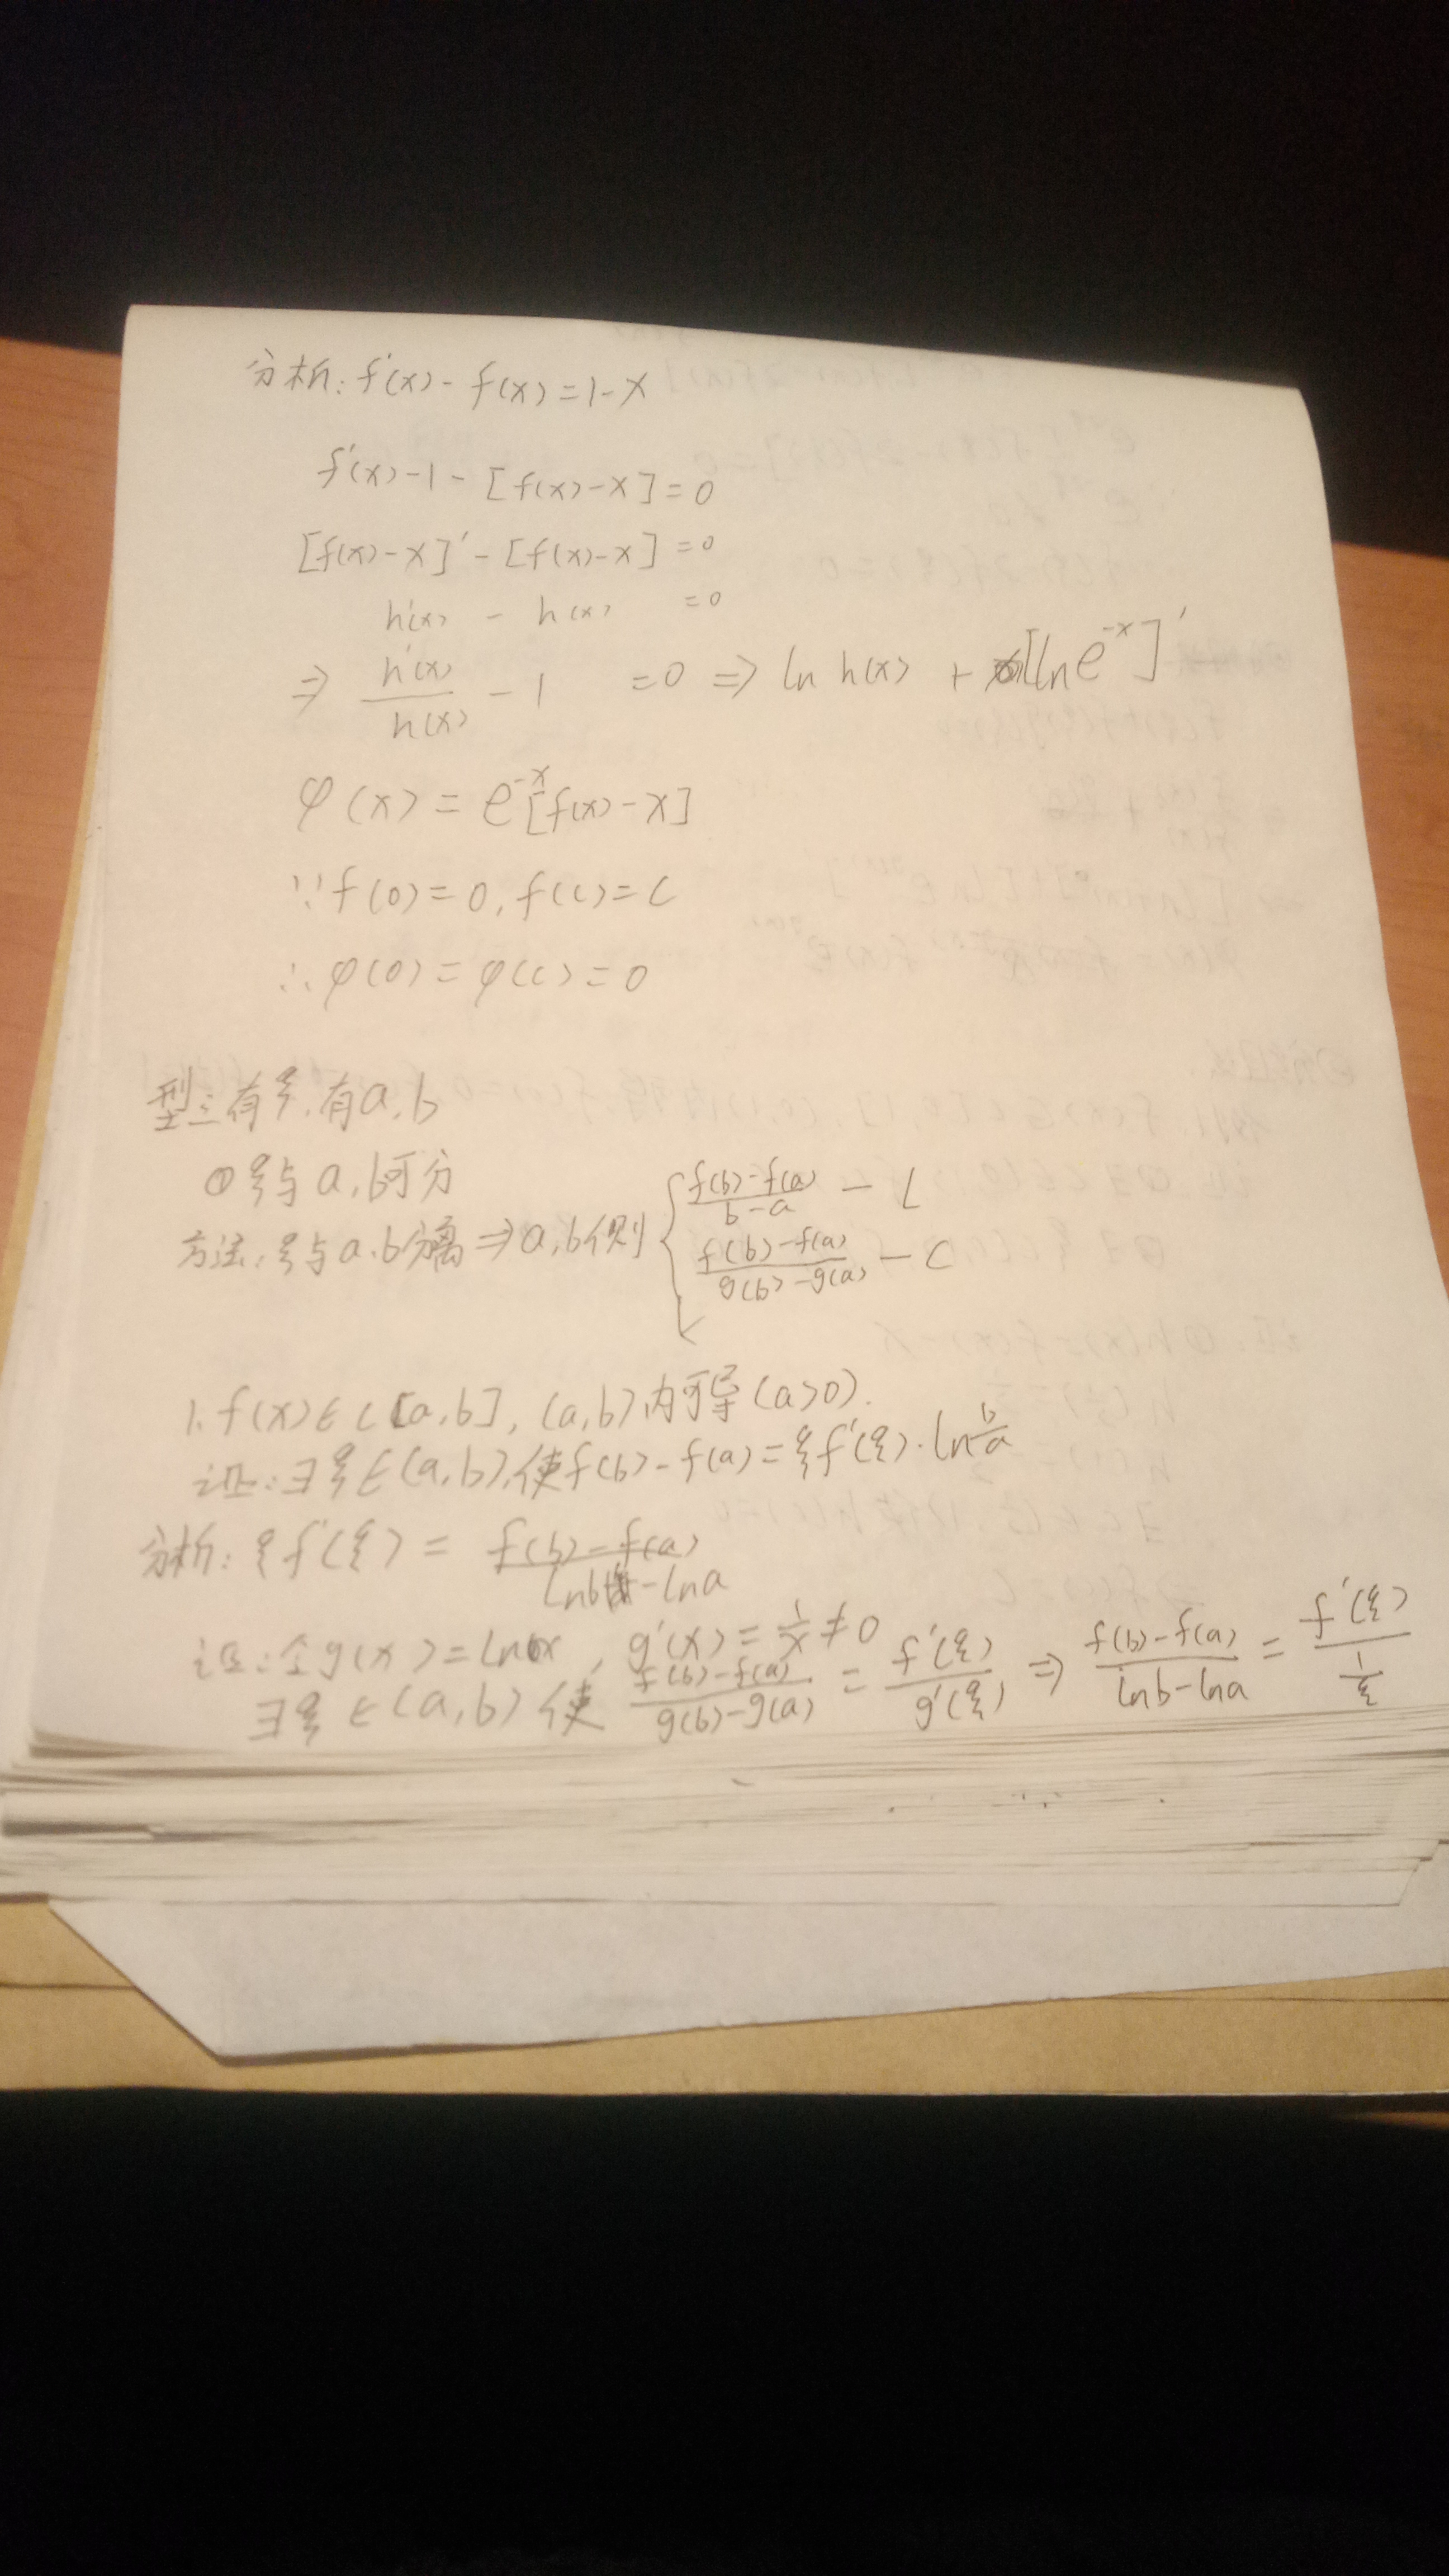 分析: f'(x) - f(x) = 1 - x
f'(x) - 1 - [f(x) - x] = 0
[f(x) - x]' - [f(x) - x] = 0
h'(x) - h(x) = 0
⇒ h'(x)/h(x) - 1 = 0 ⇒ ln h(x) + [ln e^{-x}]'
φ(x) = e^{-x}[f(x) - x]
∵ f(0) = 0, f(c) = c
∴ φ(0) = φ(c) = 0
型三 有ξ, 有a, b
① ξ与a, b可分
方法: ξ与a, b分离 ⇒ a, b侧 { (f(b)-f(a))/(b-a) — L
(f(b)-f(a))/(g(b)-g(a)) — C
1. f(x) ∈ C[a, b], (a, b)内可导 (a>0).
证: ∃ξ∈(a, b), 使f(b) - f(a) = ξf'(ξ)·ln b/a
分析: ξf'(ξ) = (f(b) - f(a))/(ln b - ln a)
证: 令g(x) = ln x, g'(x) = 1/x ≠ 0
∃ξ∈(a, b) 使 (f(b)-f(a))/(g(b)-g(a)) = f'(ξ)/g'(ξ) ⇒ (f(b)-f(a))/(ln b - ln a) = f'(ξ)/(1/ξ)